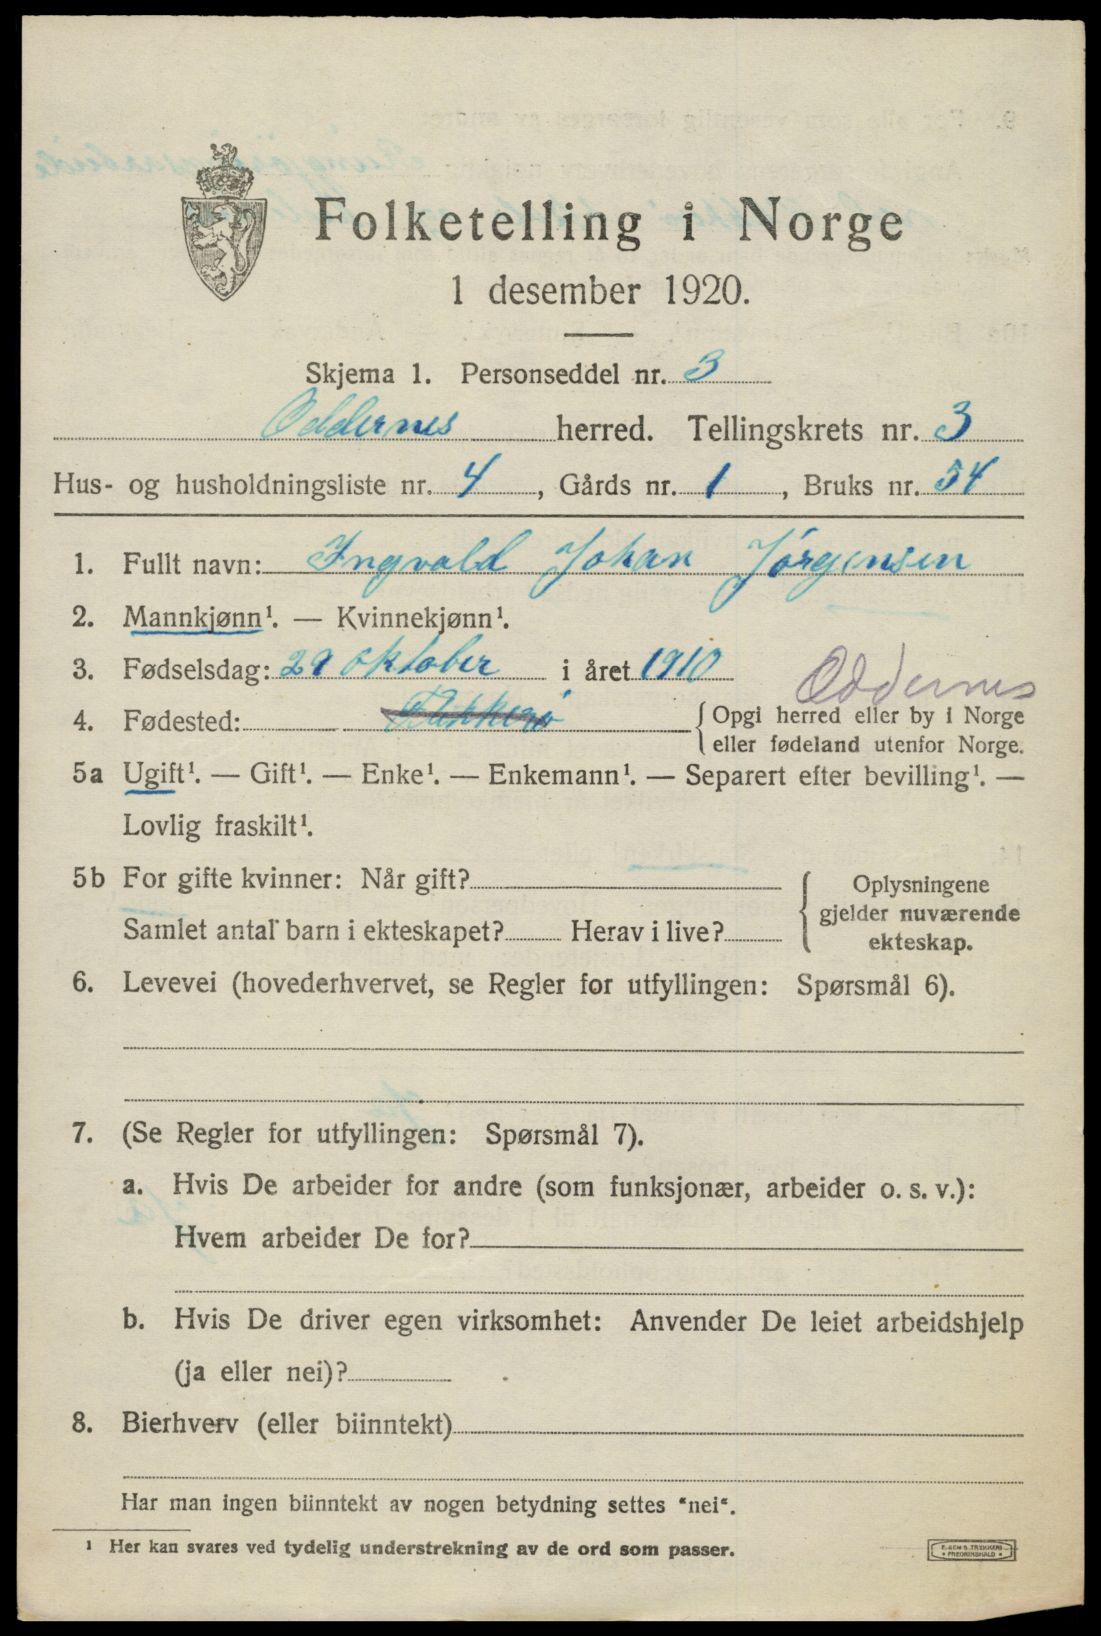 Folketelling i Norge
1 desember 1920.
Skjema 1. Personseddel nr. 3
Oddernes herred. Tellingskrets nr. 3
Hus- og husholdningsliste nr. 4, Gårds nr. 1, Bruks nr. 54
1. Fullt navn: Ingvald Johan Jörgensen
2. Mannkjønn¹. — Kvinnekjønn¹.
3. Fødselsdag: 29 oktober i året 1910
Oddernes
4. Fødested: Flekkerö {Opgi herred eller by i Norge
eller fødeland utenfor Norge.
5a Ugift¹. — Gift¹. — Enke¹. — Enkemann¹. — Separert efter bevilling¹. —
Lovlig fraskilt¹.
5b For gifte kvinner: Når gift?
Samlet antal barn i ekteskapet? Herav i live?
{Oplysningene
gjelder nuværende
ekteskap.
6. Levevei (hovederhvervet, se Regler for utfyllingen: Spørsmål 6).
7. (Se Regler for utfyllingen: Spørsmål 7).
a. Hvis De arbeider for andre (som funksjonær, arbeider o. s. v.):
Hvem arbeider De for?
b. Hvis De driver egen virksomhet: Anvender De leiet arbeidshjelp
(ja eller nei)?
8. Bierhverv (eller biinntekt)
Har man ingen biinntekt av nogen betydning settes "nei".
¹ Her kan svares ved tydelig understrekning av de ord som passer.
FREDRIKSHALD